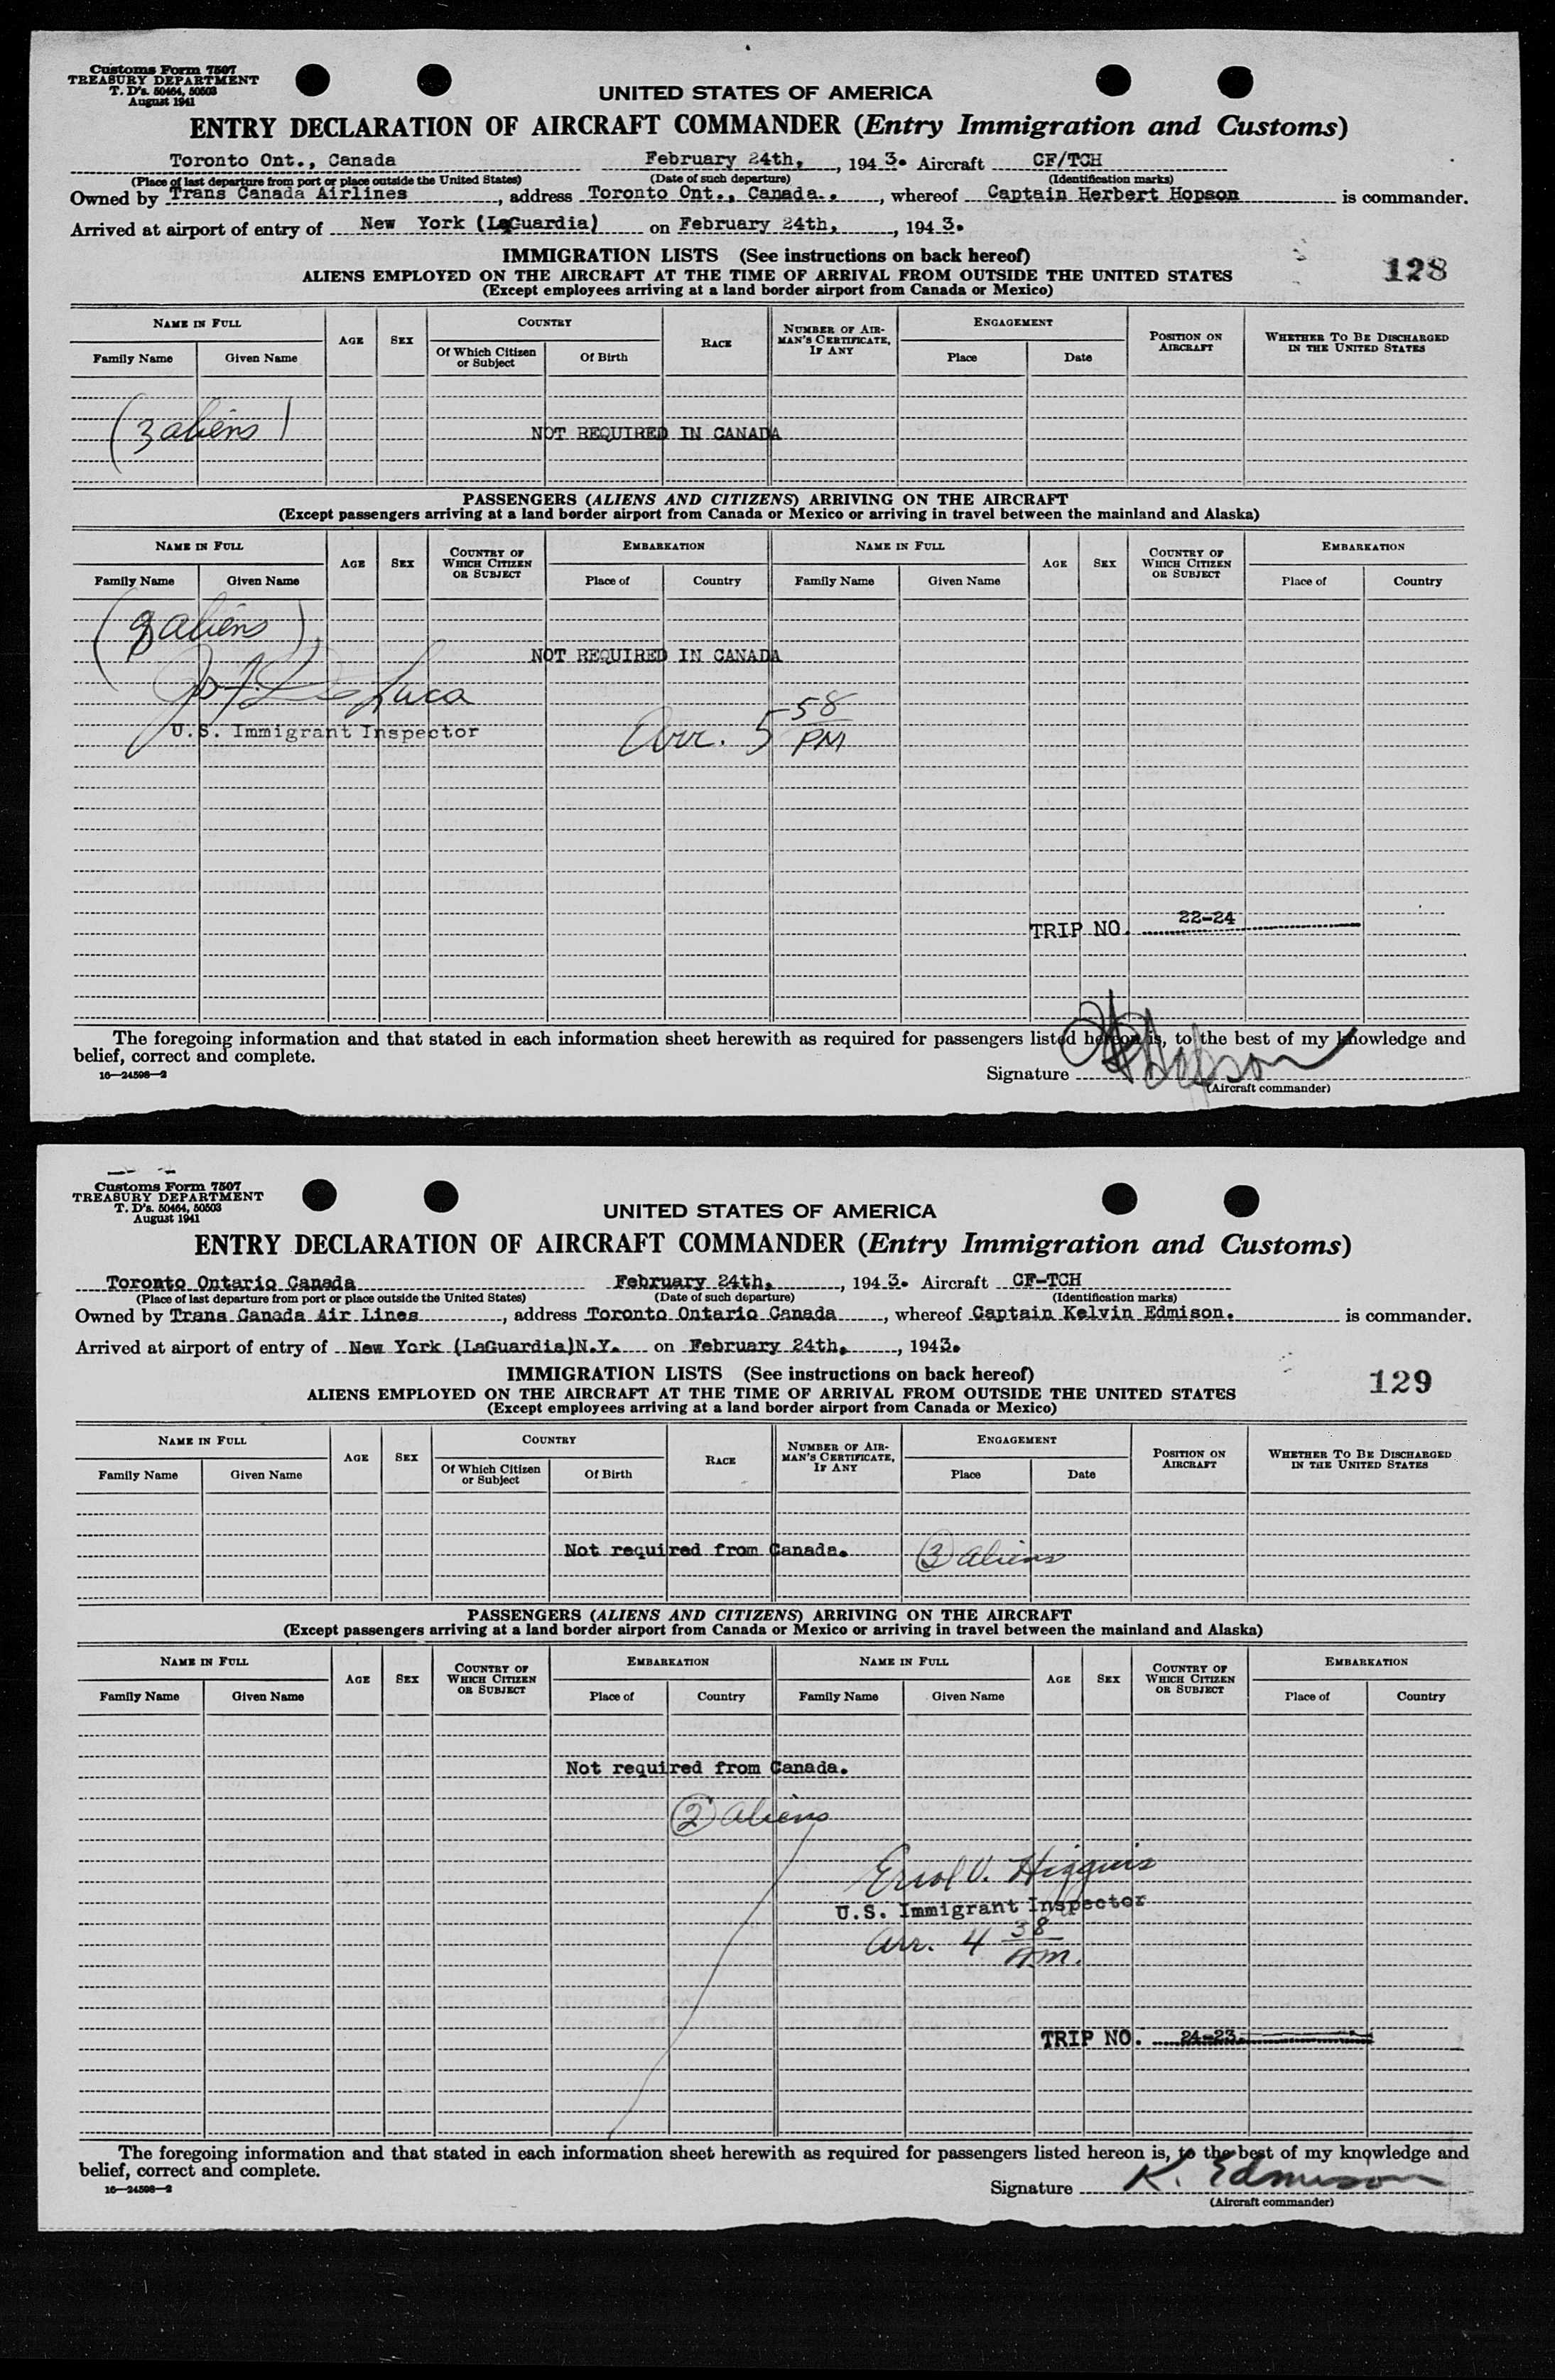 Customs Form 7507
TREASURY DEPARTMENT
T. D's. 50464, 50503
August 1941
UNITED STATES OF AMERICA
ENTRY DECLARATION OF AIRCRAFT COMMANDER (Entry Immigration and Customs)
Toronto Ont., Canada February 24th, , 1943. Aircraft CF/TCH
(Place of last departure from port or place outside the United States) (Date of such departure) (Identification marks)
Owned by Trans Canada Airlines , address Toronto Ont., Canada. , whereof Captain Herbert Hopson is commander.
Arrived at airport of entry of New York (LaGuardia) on February 24th, , 1943.
IMMIGRATION LISTS (See instructions on back hereof)
128
ALIENS EMPLOYED ON THE AIRCRAFT AT THE TIME OF ARRIVAL FROM OUTSIDE THE UNITED STATES
(Except employees arriving at a land border airport from Canada or Mexico)
NAME IN FULL AGE SEX COUNTRY RACE NUMBER OF AIRMAN'S CERTIFICATE, IF ANY ENGAGEMENT POSITION ON AIRCRAFT WHETHER TO BE DISCHARGED IN THE UNITED STATES
Family Name Given Name Of Which Citizen or Subject Of Birth Place Date
(3 aliens)
NOT REQUIRED IN CANADA
PASSENGERS (ALIENS AND CITIZENS) ARRIVING ON THE AIRCRAFT
(Except passengers arriving at a land border airport from Canada or Mexico or arriving in travel between the mainland and Alaska)
NAME IN FULL AGE SEX COUNTRY OF WHICH CITIZEN OR SUBJECT EMBARKATION NAME IN FULL AGE SEX COUNTRY OF WHICH CITIZEN OR SUBJECT EMBARKATION
Family Name Given Name Place of Country Family Name Given Name Place of Country
aliens)
NOT REQUIRED IN CANADA
De Luca
U.S. Immigrant Inspector
Arr. 5 58 PM
TRIP NO. 22-24
The foregoing information and that stated in each information sheet herewith as required for passengers listed hereon is, to the best of my knowledge and
belief, correct and complete.
16—24598—2
Signature H Hopson
(Aircraft commander)
Customs Form 7507
TREASURY DEPARTMENT
T. D's. 50464, 50503
August 1941
UNITED STATES OF AMERICA
ENTRY DECLARATION OF AIRCRAFT COMMANDER (Entry Immigration and Customs)
Toronto Ontario Canada February 24th, , 1943. Aircraft CF-TCH
(Place of last departure from port or place outside the United States) (Date of such departure) (Identification marks)
Owned by Trans Canada Air Lines , address Toronto Ontario Canada , whereof Captain Kelvin Edmison. is commander.
Arrived at airport of entry of New York (LaGuardia)N.Y. on February 24th, , 1943.
IMMIGRATION LISTS (See instructions on back hereof)
129
ALIENS EMPLOYED ON THE AIRCRAFT AT THE TIME OF ARRIVAL FROM OUTSIDE THE UNITED STATES
(Except employees arriving at a land border airport from Canada or Mexico)
NAME IN FULL AGE SEX COUNTRY RACE NUMBER OF AIRMAN'S CERTIFICATE, IF ANY ENGAGEMENT POSITION ON AIRCRAFT WHETHER TO BE DISCHARGED IN THE UNITED STATES
Family Name Given Name Of Which Citizen or Subject Of Birth Place Date
Not required from Canada. (3) aliens
PASSENGERS (ALIENS AND CITIZENS) ARRIVING ON THE AIRCRAFT
(Except passengers arriving at a land border airport from Canada or Mexico or arriving in travel between the mainland and Alaska)
NAME IN FULL AGE SEX COUNTRY OF WHICH CITIZEN OR SUBJECT EMBARKATION NAME IN FULL AGE SEX COUNTRY OF WHICH CITIZEN OR SUBJECT EMBARKATION
Family Name Given Name Place of Country Family Name Given Name Place of Country
Not required from Canada.
(2) aliens
Errol V. Higgins
U.S. Immigrant Inspector
Arr. 4 38 AM.
TRIP NO. 24-23
The foregoing information and that stated in each information sheet herewith as required for passengers listed hereon is, to the best of my knowledge and
belief, correct and complete.
16—24598—2
Signature K. Edmison
(Aircraft commander)